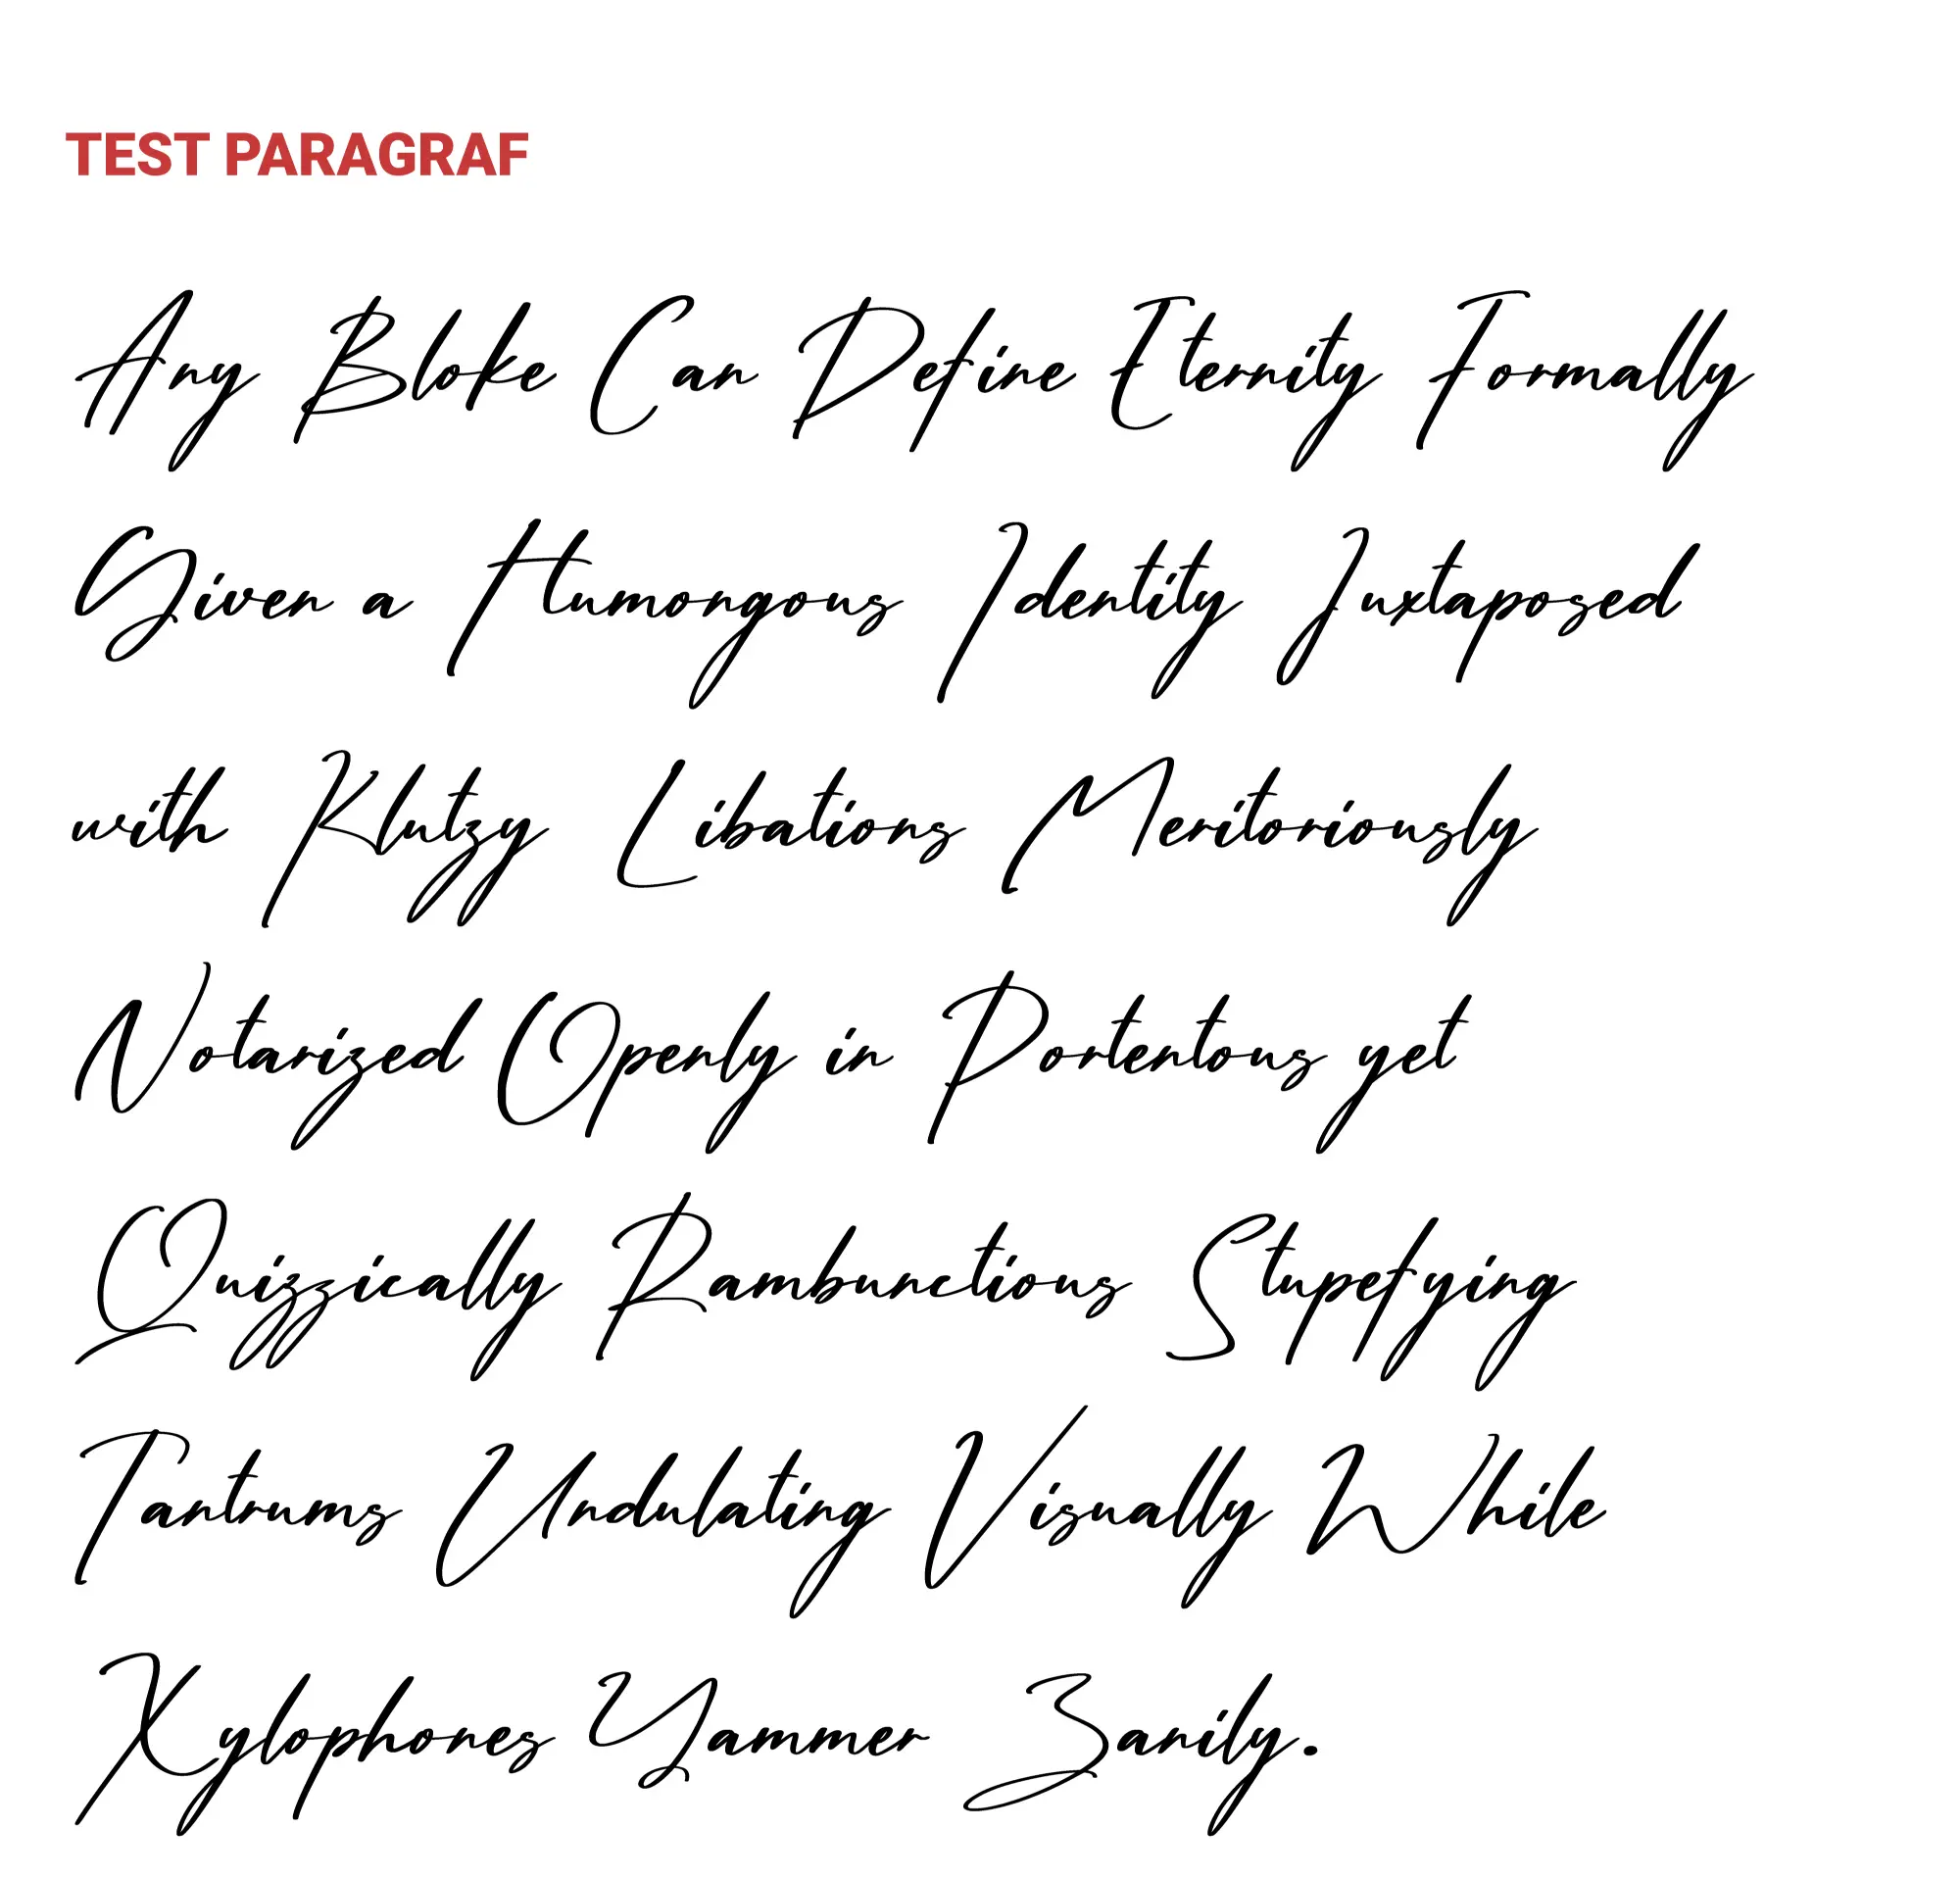 TEST PARAGRAF
Any Bloke Can Define Eternity Formally
Given a Humongous Identity Juxtaposed
with Klutzy Libations Meritoriously
Notarized Openly in Portentous yet
Quizzically Rambunctious Stupefying
Tantrums Undulating Visually While
Xylophones Yammer Zanily.